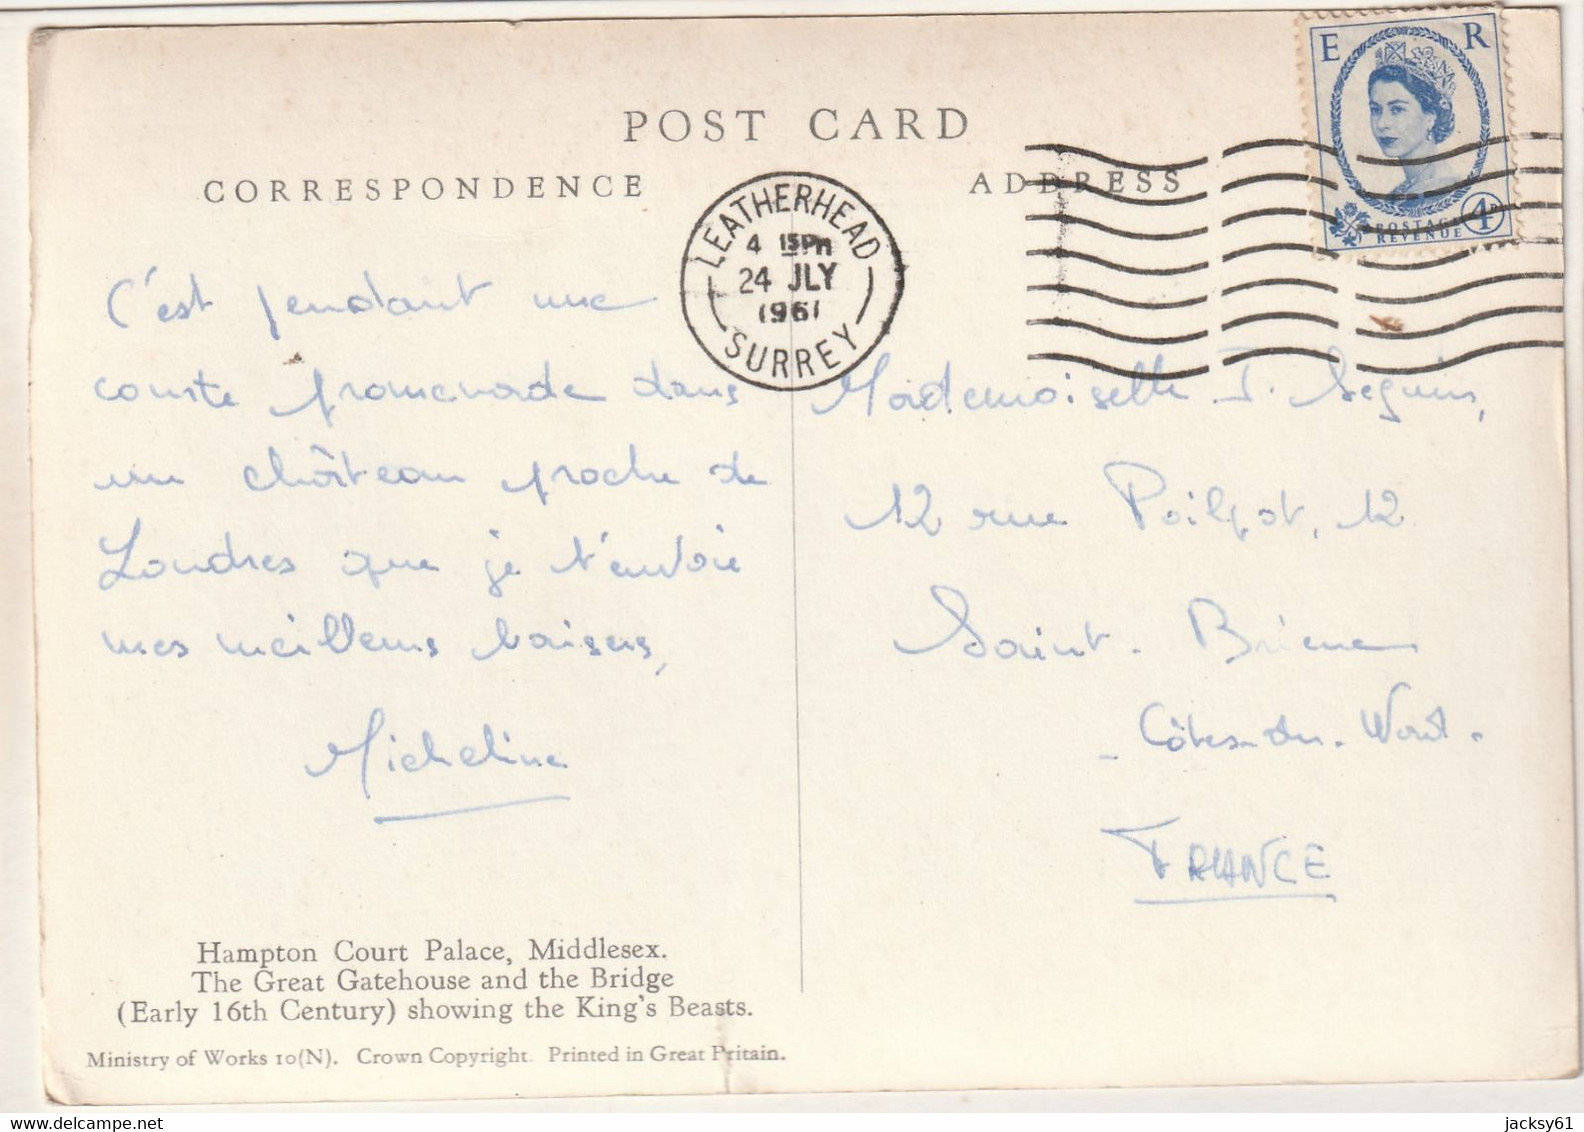 POST CARD
CORRESPONDENCE
ADDRESS
E R
POSTAGE
REVENUE
4D
LEATHERHEAD
4 15 PM
24 JLY
1961
SURREY
C'est pendant une
courte promenade dans
un château proche de
Londres que je t'envoie
mes meilleurs baisers,
Micheline
Mademoiselle J. Seguin,
12 rue Poilpot, 12
Saint-Brieuc
- Côtes-du-Nord -
FRANCE
Hampton Court Palace, Middlesex.
The Great Gatehouse and the Bridge
(Early 16th Century) showing the King's Beasts.
Ministry of Works 10(N). Crown Copyright. Printed in Great Britain.
jacksy61